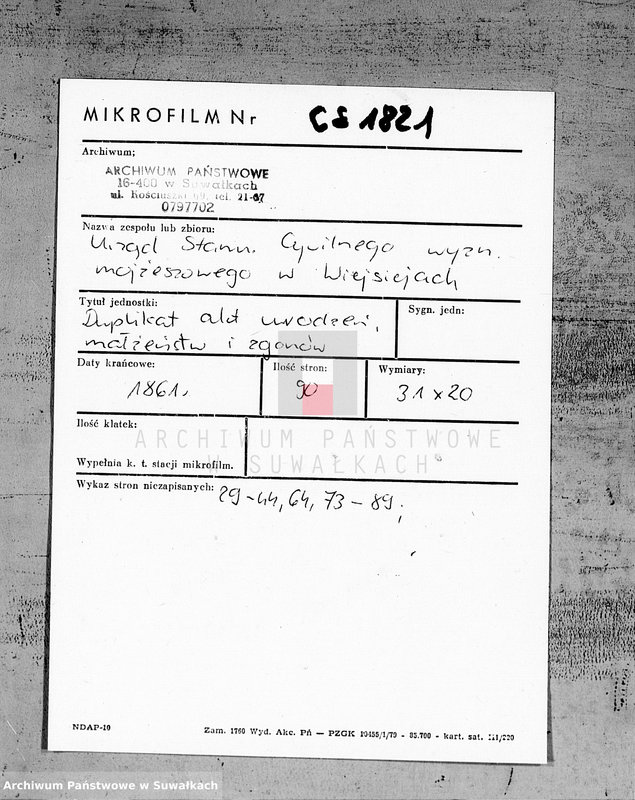 MIKROFILM Nr CS 1821
Archiwum;
ARCHIWUM PAŃSTWOWE
16-400 w Suwałkach
ul. Kościuszki 69, tel. 21-67
0797702
Nazwa zespołu lub zbioru:
Urząd Stanu Cywilnego wyzn.
mojżeszowego w Wiejsiejach
Tytuł jednostki:
Sygn. jedn:
Duplikat akt urodzeń,
małżeństw i zgonów
Daty krańcowe:
Ilość stron:
Wymiary:
1861.
90
31 x 20
Ilość klatek:
ARCHIWUM PAŃSTWOWE
W SUWAŁKACH
Wypełnia k. t. stacji mikrofilm.
Wykaz stron niezapisanych: 29-44, 64, 73-89;
NDAP-10
Zam. 1760 Wyd. Akc. Pń — PZGK 10455/1/79 - 85.700 - kart. sat. III/220
Archiwum Państwowe w Suwałkach